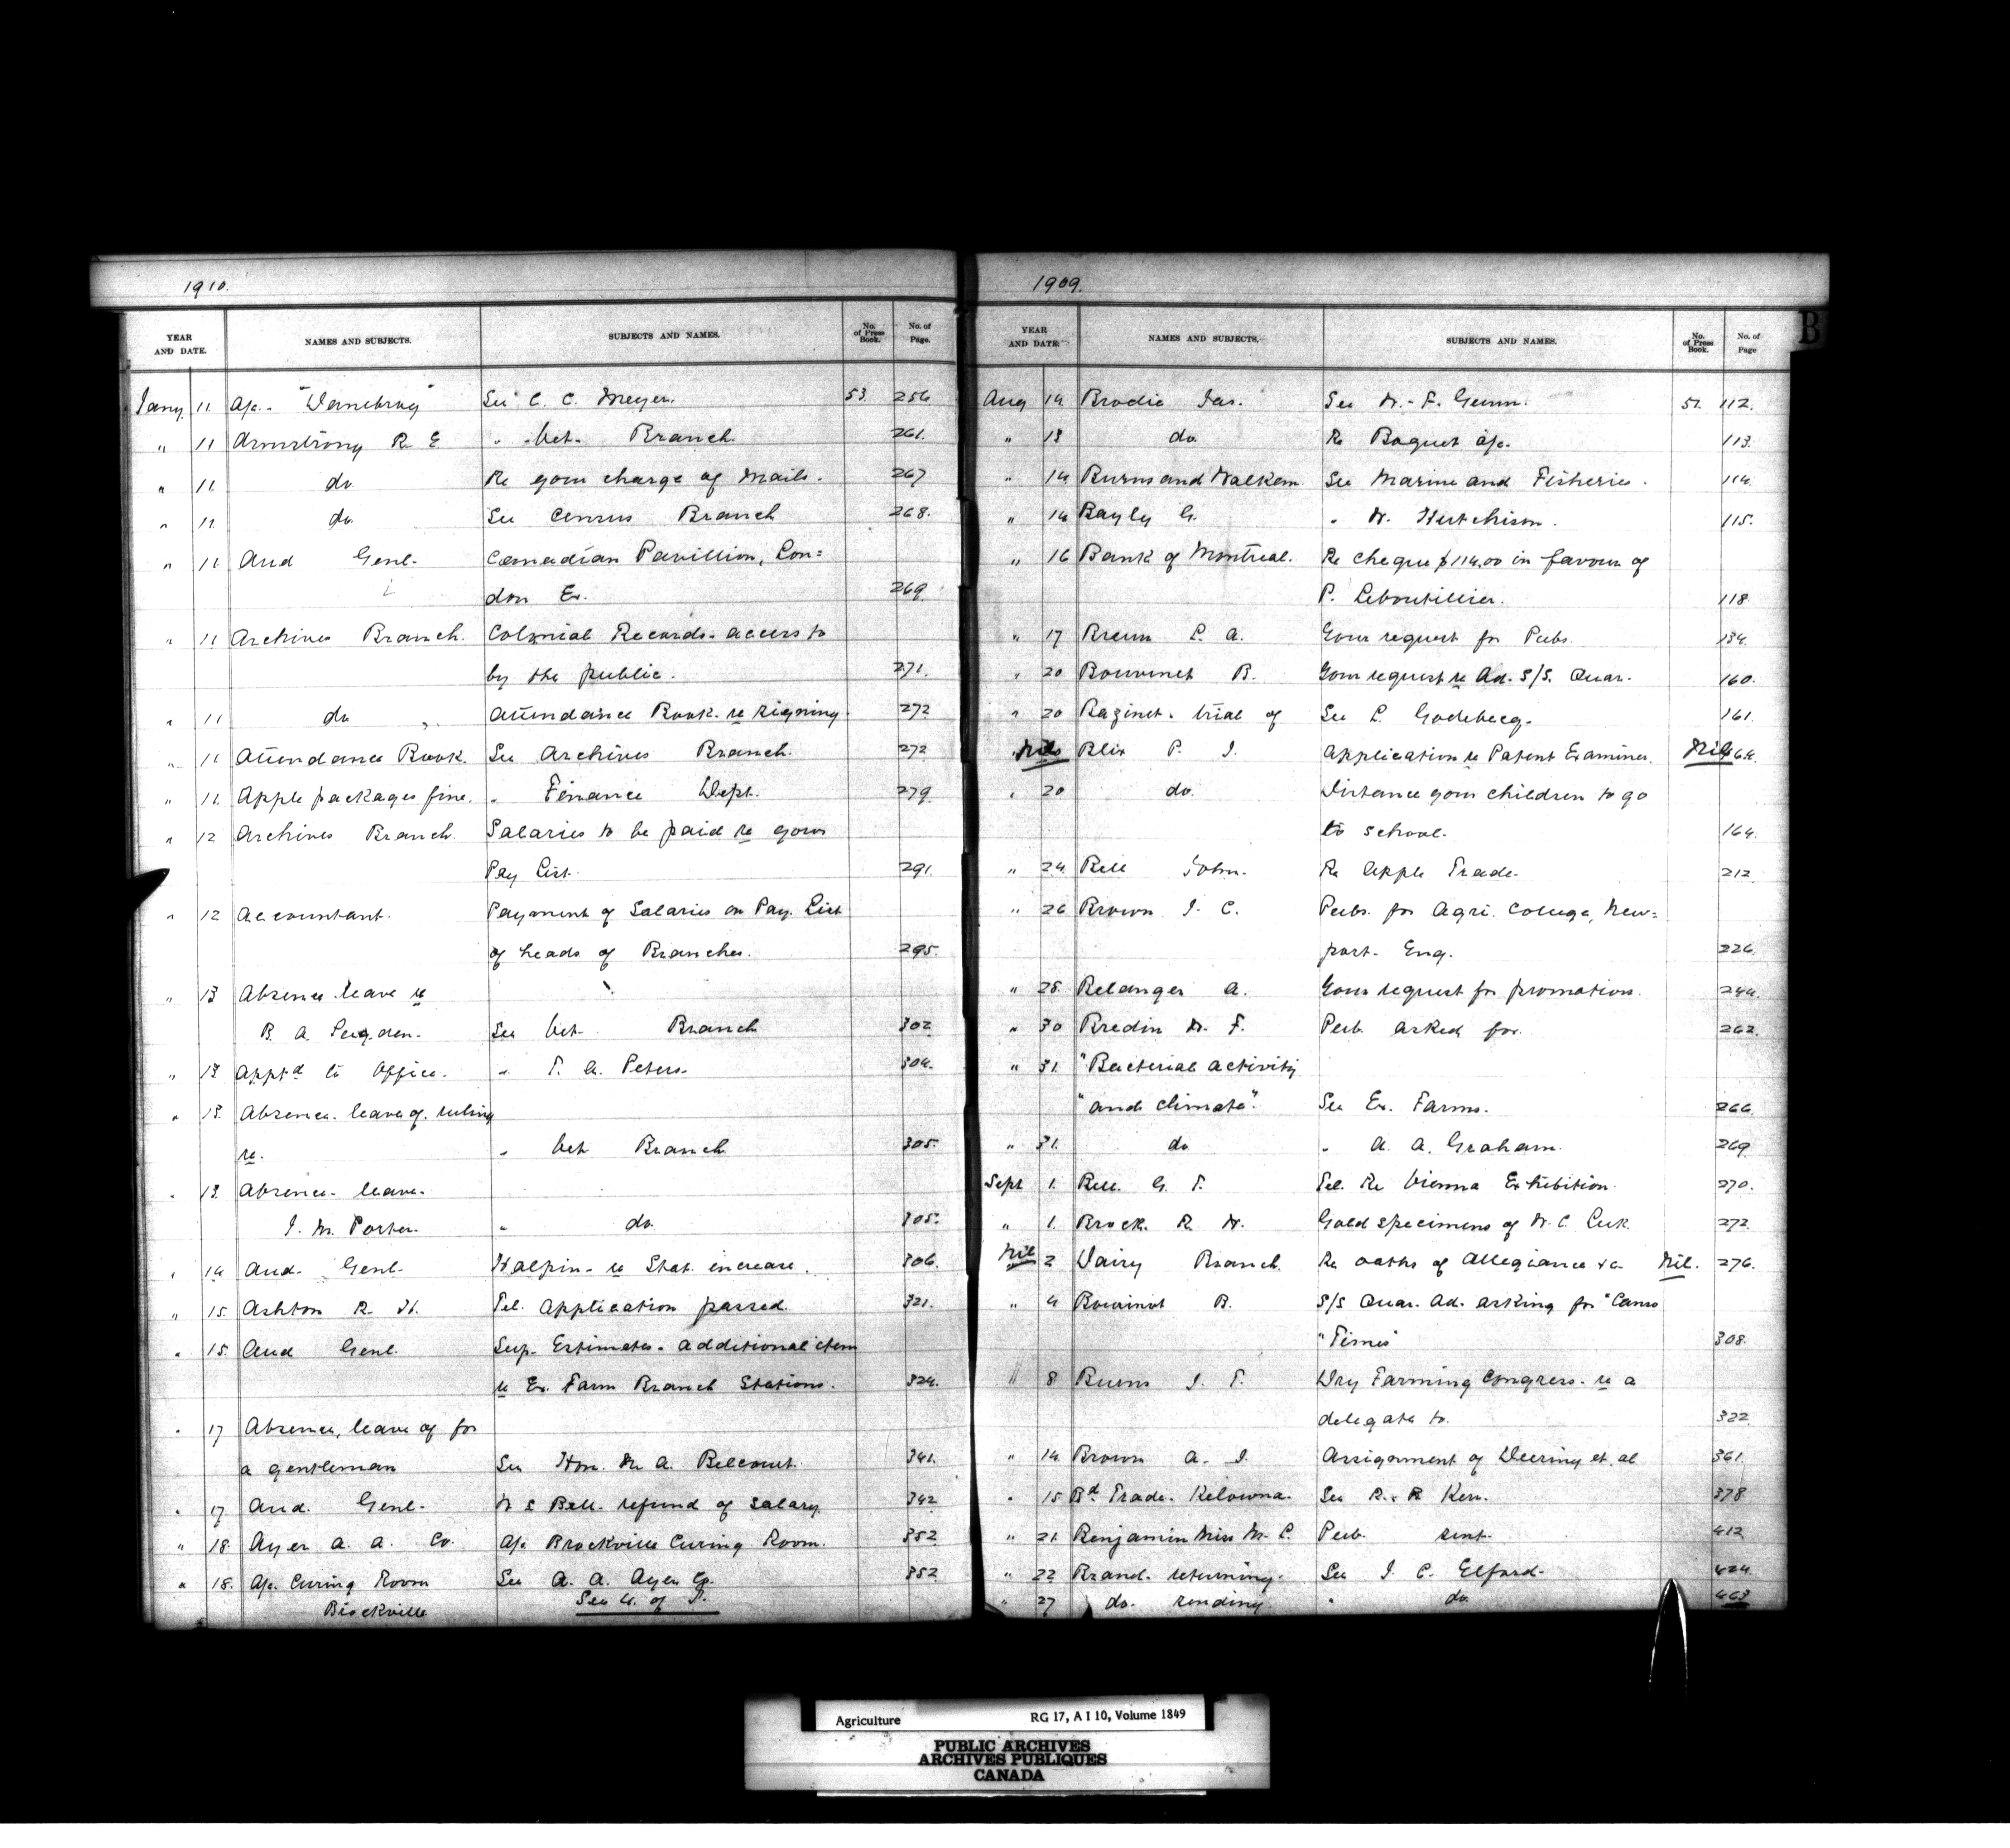 1910.
YEAR AND DATE. NAMES AND SUBJECTS. SUBJECTS AND NAMES. No. of Press Book. No. of Page.
Jany 11 A/c. "Danebrog" See C. C. Meyer. 53. 256
" 11 Armstrong R. E. " Vet. Branch. 261.
" 11. do. Re your charge of Mails. 267
" 11. do. See Census Branch 268.
" 11 Aud Genl. Canadian Pavillion, Lon=
don Ex. 269.
" 11 Archives Branch. Colonial Records. access to
by the public. 271.
" 11 do " Attendance Book. re signing. 272
" 11 Attendance Book. See Archives Branch. 272
" 11. Apple packages fine. " Finance Dept. 279.
" 12 Archives Branch. Salaries to be paid re your
Pay List. 291.
" 12 Accountant. Payment of Salaries on Pay. List
of heads of Branches. 295.
" 13 Absence leave re
B. A. Sugden. See Vet. Branch 302
" 13 Apptd to Office. " T. A. Peters. 304.
" 13. Absence. leave of. ruling
re. " Vet Branch 305.
" 13. Absence. leave.
J. M. Porter. " do. 305.
" 14 Aud. Genl. Halpin. re Stat. increase. 306.
" 15. Ashton R. H. Tel. Application passed. 321.
" 15. Aud Genl. Sup. Estimates. additional item
re Ex. Farm Branch Stations. 324.
" 17 Absence, leave of for
a gentleman See Hon. N. A. Belcourt. 341.
" 17 Aud. Genl. W S Bell. refund of salary. 342
" 18. Ayer A. A. Co. A/c Brockville Curing Room. 352
" 18. A/c. Curing Room See A. A. Ayer Co. 352.
Brockville See U. of T.
1909.
B
YEAR AND DATE. NAMES AND SUBJECTS. SUBJECTS AND NAMES. No. of Press Book. No. of Page
Aug 14. Brodie Jas. See W. F. Gunn. 51. 112.
" 13 do. Re Baquet a/c. 113.
" 14 Burns and Walkem. See Marine and Fisheries. 114.
" 14 Bayly G. " W. Hutchison. 115.
" 16 Bank of Montreal. Re cheque $114.00 in favour of
P. Leboutillier. 118
" 17 L. A. Your request for Pubs. 134.
" 20 B. Your request re Ad. S/S. Quar. 160.
" 20 Bazinet. trial of See L. 161.
Nil Blix P. J. Application re Patent Examiner. Nil 164.
" 20 do. Distance your children to go
to school. 164.
" 24. Bell John. Re Apple Trade. 212
" 26 Brown J. C. Pubs. for Agri. College, New=
port. Eng. 226.
" 28. Belanger A. Your request for promotion. 244.
" 30 Bredin W. F. Pub. asked for. 262.
" 31. "Bacterial activity
"and climate". See Ex. Farms. 266.
" 31. do " A. A. Graham. 269
Sept 1. Bell. G. T. Tel. Re Vienna Exhibition. 270.
" 1. Brock. R. W. Gold specimens of W. C. 272.
Nil 2 Dairy Branch. Re oaths of Allegiance &c Nil. 276.
" 4 Bourinot B. S/S Quar. Ad. asking for "Canso
"Times" 308.
" 8. Burns J. T. Dry Farming Congress. re a
delegate to. 322.
" 14. Brown A. J. Assignment of Deering et. al 361.
" 15 Bd Trade. Kelowna. See R. R Kerr. 378
" 21. Benjamin Miss M. C. Pub. sent. 412
" 22 Brand. returning. See J. C. Elford. 424.
" 27 do. sending. " do. 463
Agriculture RG 17, A I 10, Volume 1849
PUBLIC ARCHIVES
ARCHIVES PUBLIQUES
CANADA